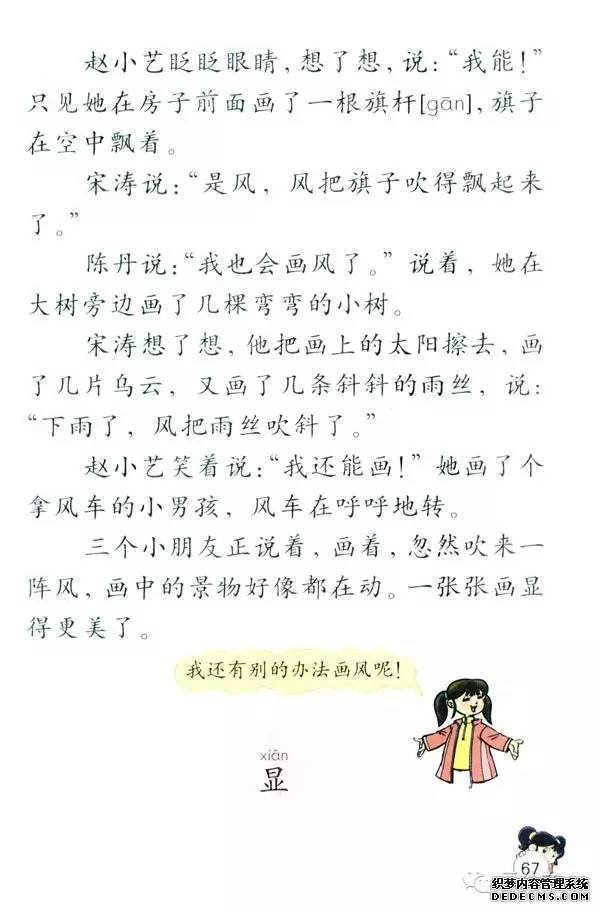 赵小艺眨眨眼睛，想了想，说：“我能！”
只见她在房子前面画了一根旗杆[gān]，旗子
在空中飘着。
宋涛说：“是风，风把旗子吹得飘起来
了。”
陈丹说：“我也会画风了。”说着，她在
大树旁边画了几棵弯弯的小树。
宋涛想了想，他把画上的太阳擦去，画
了几片乌云，又画了几条斜斜的雨丝，说：
“下雨了，风把雨丝吹斜了。”
赵小艺笑着说：“我还能画！”她画了个
拿风车的小男孩，风车在呼呼地转。
三个小朋友正说着，画着，忽然吹来一
阵风，画中的景物好像都在动。一张张画显
得更美了。
我还有别的办法画风呢！
xiǎn
显
67
织梦内容管理系统
DEDECMS.COM